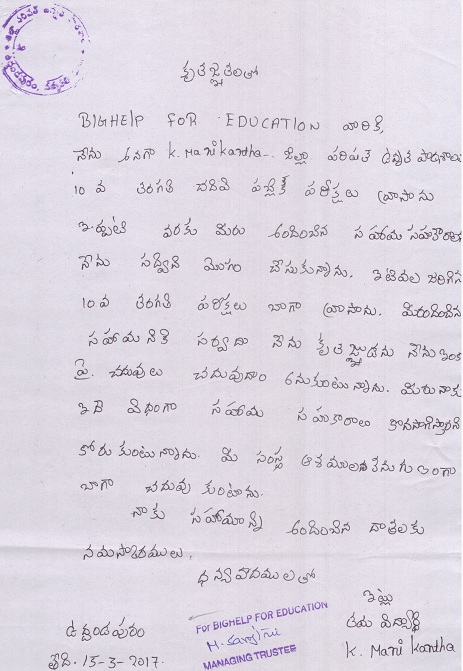 కృతజ్ఞతలతో
BIGHELP FOR EDUCATION వారికి,
నేను అనగా K. Manikantha.. జిల్లా పరిషత్ ఉన్నత పాఠశాల
10 వ తరగతి చదివి పబ్లిక్ పరీక్షలు వ్రాసాను
ఇప్పటి వరకు మీరు అందించిన సహాయ సహకారాలు
నేను సద్వినియోగం చేసుకున్నాను. ఇటీవల జరిగిన
10 వ తరగతి పరీక్షలు బాగా వ్రాసాను. మీరందించిన
సహాయనికి సర్వదా నేను కృతజ్ఞుడను నేను ఇంక
పై. చదువులు చదువుదాం అనుకుంటున్నాను. మీరు నాకు
ఇదే విధంగా సహాయ సహకారాలు కొనసాగిస్తారని
కోరుకుంటున్నాను. మీ సంస్థ ఆశయాలకనుగుణంగా
బాగా చదువుకుంటాను.
నాకు సహాయాన్ని అందించిన దాతలకు
నమస్కారములు.
ధన్యవాదములతో
ఇట్లు
ఉద్దండపురం
తమ విద్యార్థి
తేది. 15-3-2017.
K. Manikantha
For BIGHELP FOR EDUCATION
MANAGING TRUSTEE